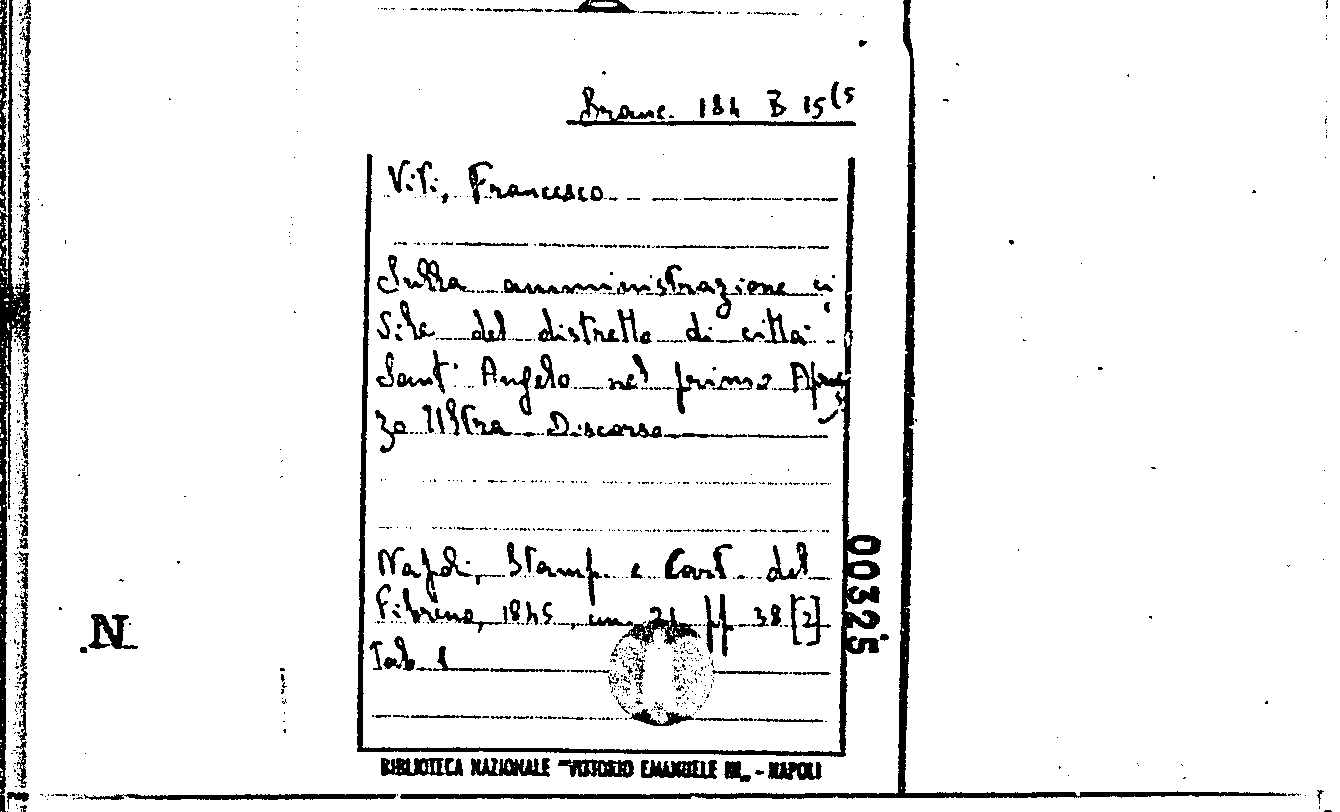 Branc. 184 B 15(5
Viti, Francesco
Sulla amministrazione ci
vile del distretto di città
Sant' Angelo nel primo Apruz
zo Ultra. Discorso
Napoli, Stamp. e Cart. del
Fibreno, 1845, cm. 21 pp 38 [2]
Tab 1
00325
.N.
BIBLIOTECA NAZIONALE "VITTORIO EMANUELE III„ - NAPOLI